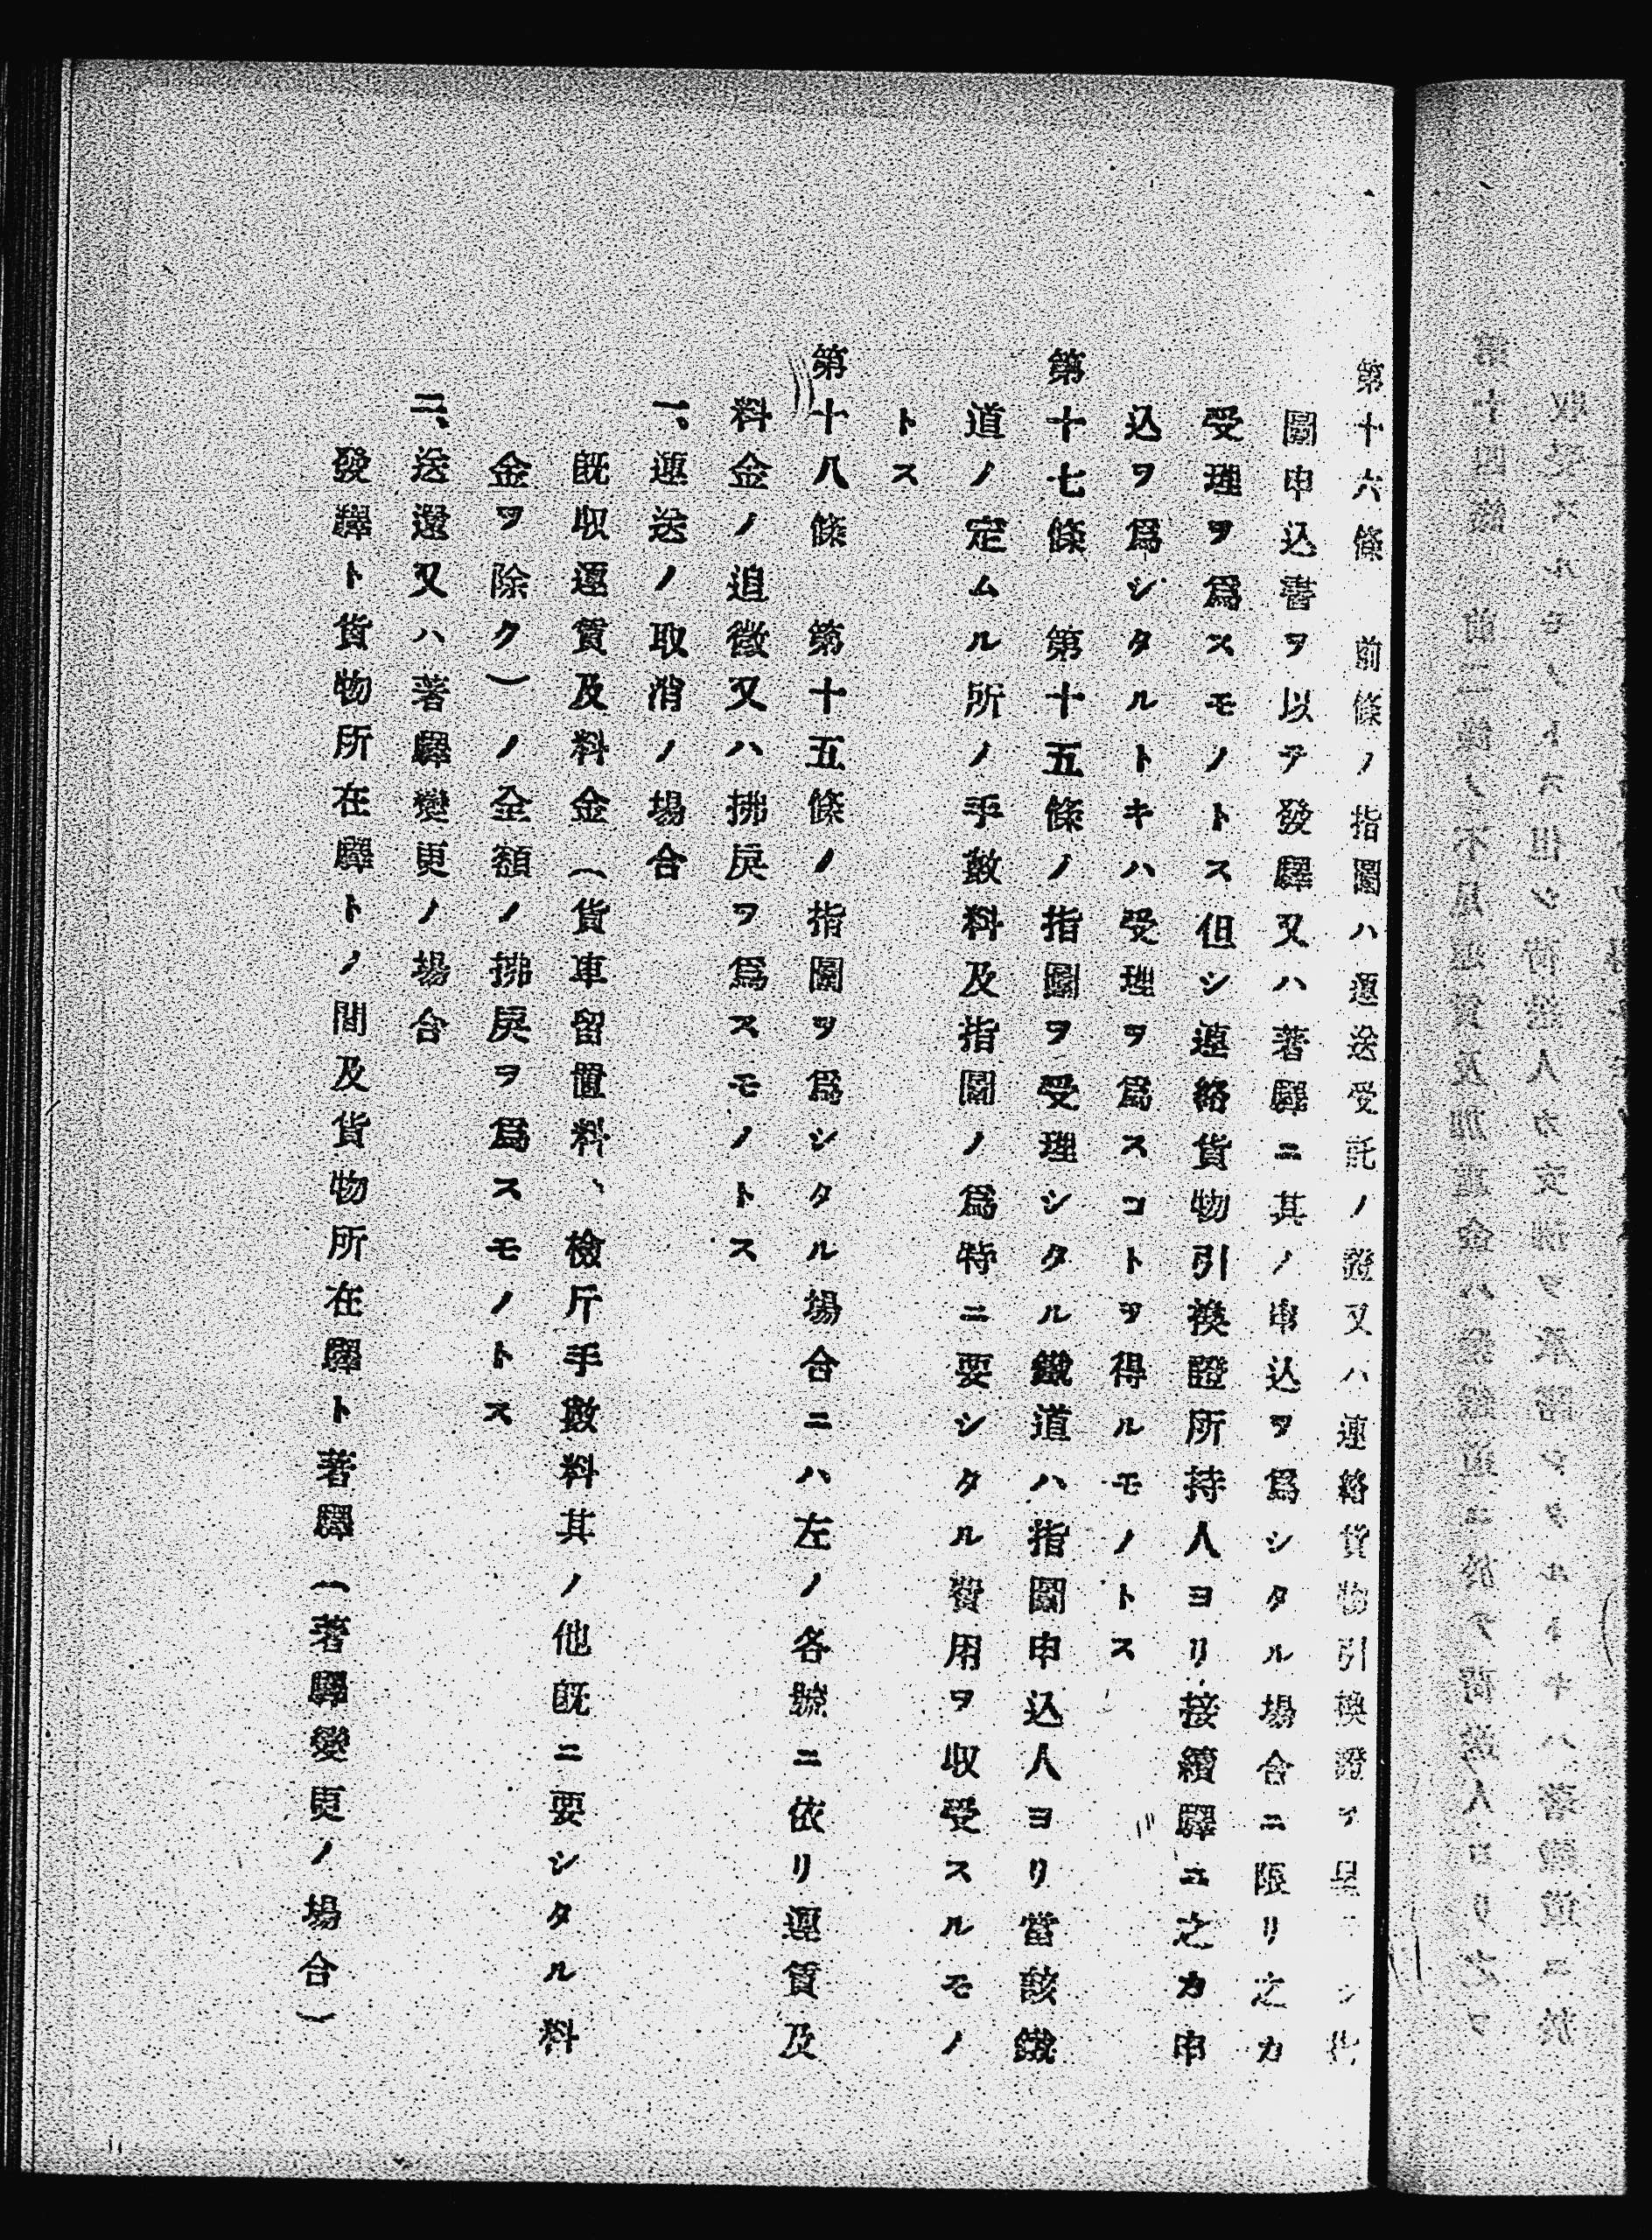 第十六條　前條ノ指圖ハ運送受託ノ證又ハ連絡貨物引換證ヲ呈シ指
圖申込書ヲ以テ發驛又ハ著驛ニ其ノ申込ヲ爲シタル場合ニ限リ之カ
受理ヲ爲スモノトス但シ連絡貨物引換證所持人ヨリ接續驛ニ之カ申
込ヲ爲シタルトキハ受理ヲ爲スコトヲ得ルモノトス
第十七條　第十五條ノ指圖ヲ受理シタル鐵道ハ指圖申込人ヨリ當該鐵
道ノ定ムル所ノ手數料及指圖ノ爲特ニ要シタル費用ヲ収受スルモノ
トス
第十八條　第十五條ノ指圖ヲ爲シタル場合ニハ左ノ各號ニ依リ運賃及
料金ノ追徵又ハ拂戾ヲ爲スモノトス
一、運送ノ取消ノ場合
既収運賃及料金（貨車留置料、檢斤手數料其ノ他既ニ要シタル料
金ヲ除ク）ノ全額ノ拂戾ヲ爲スモノトス
二、送還又ハ著驛變更ノ場合
發驛ト貨物所在驛トノ間及貨物所在驛ト著驛（著驛變更ノ場合）